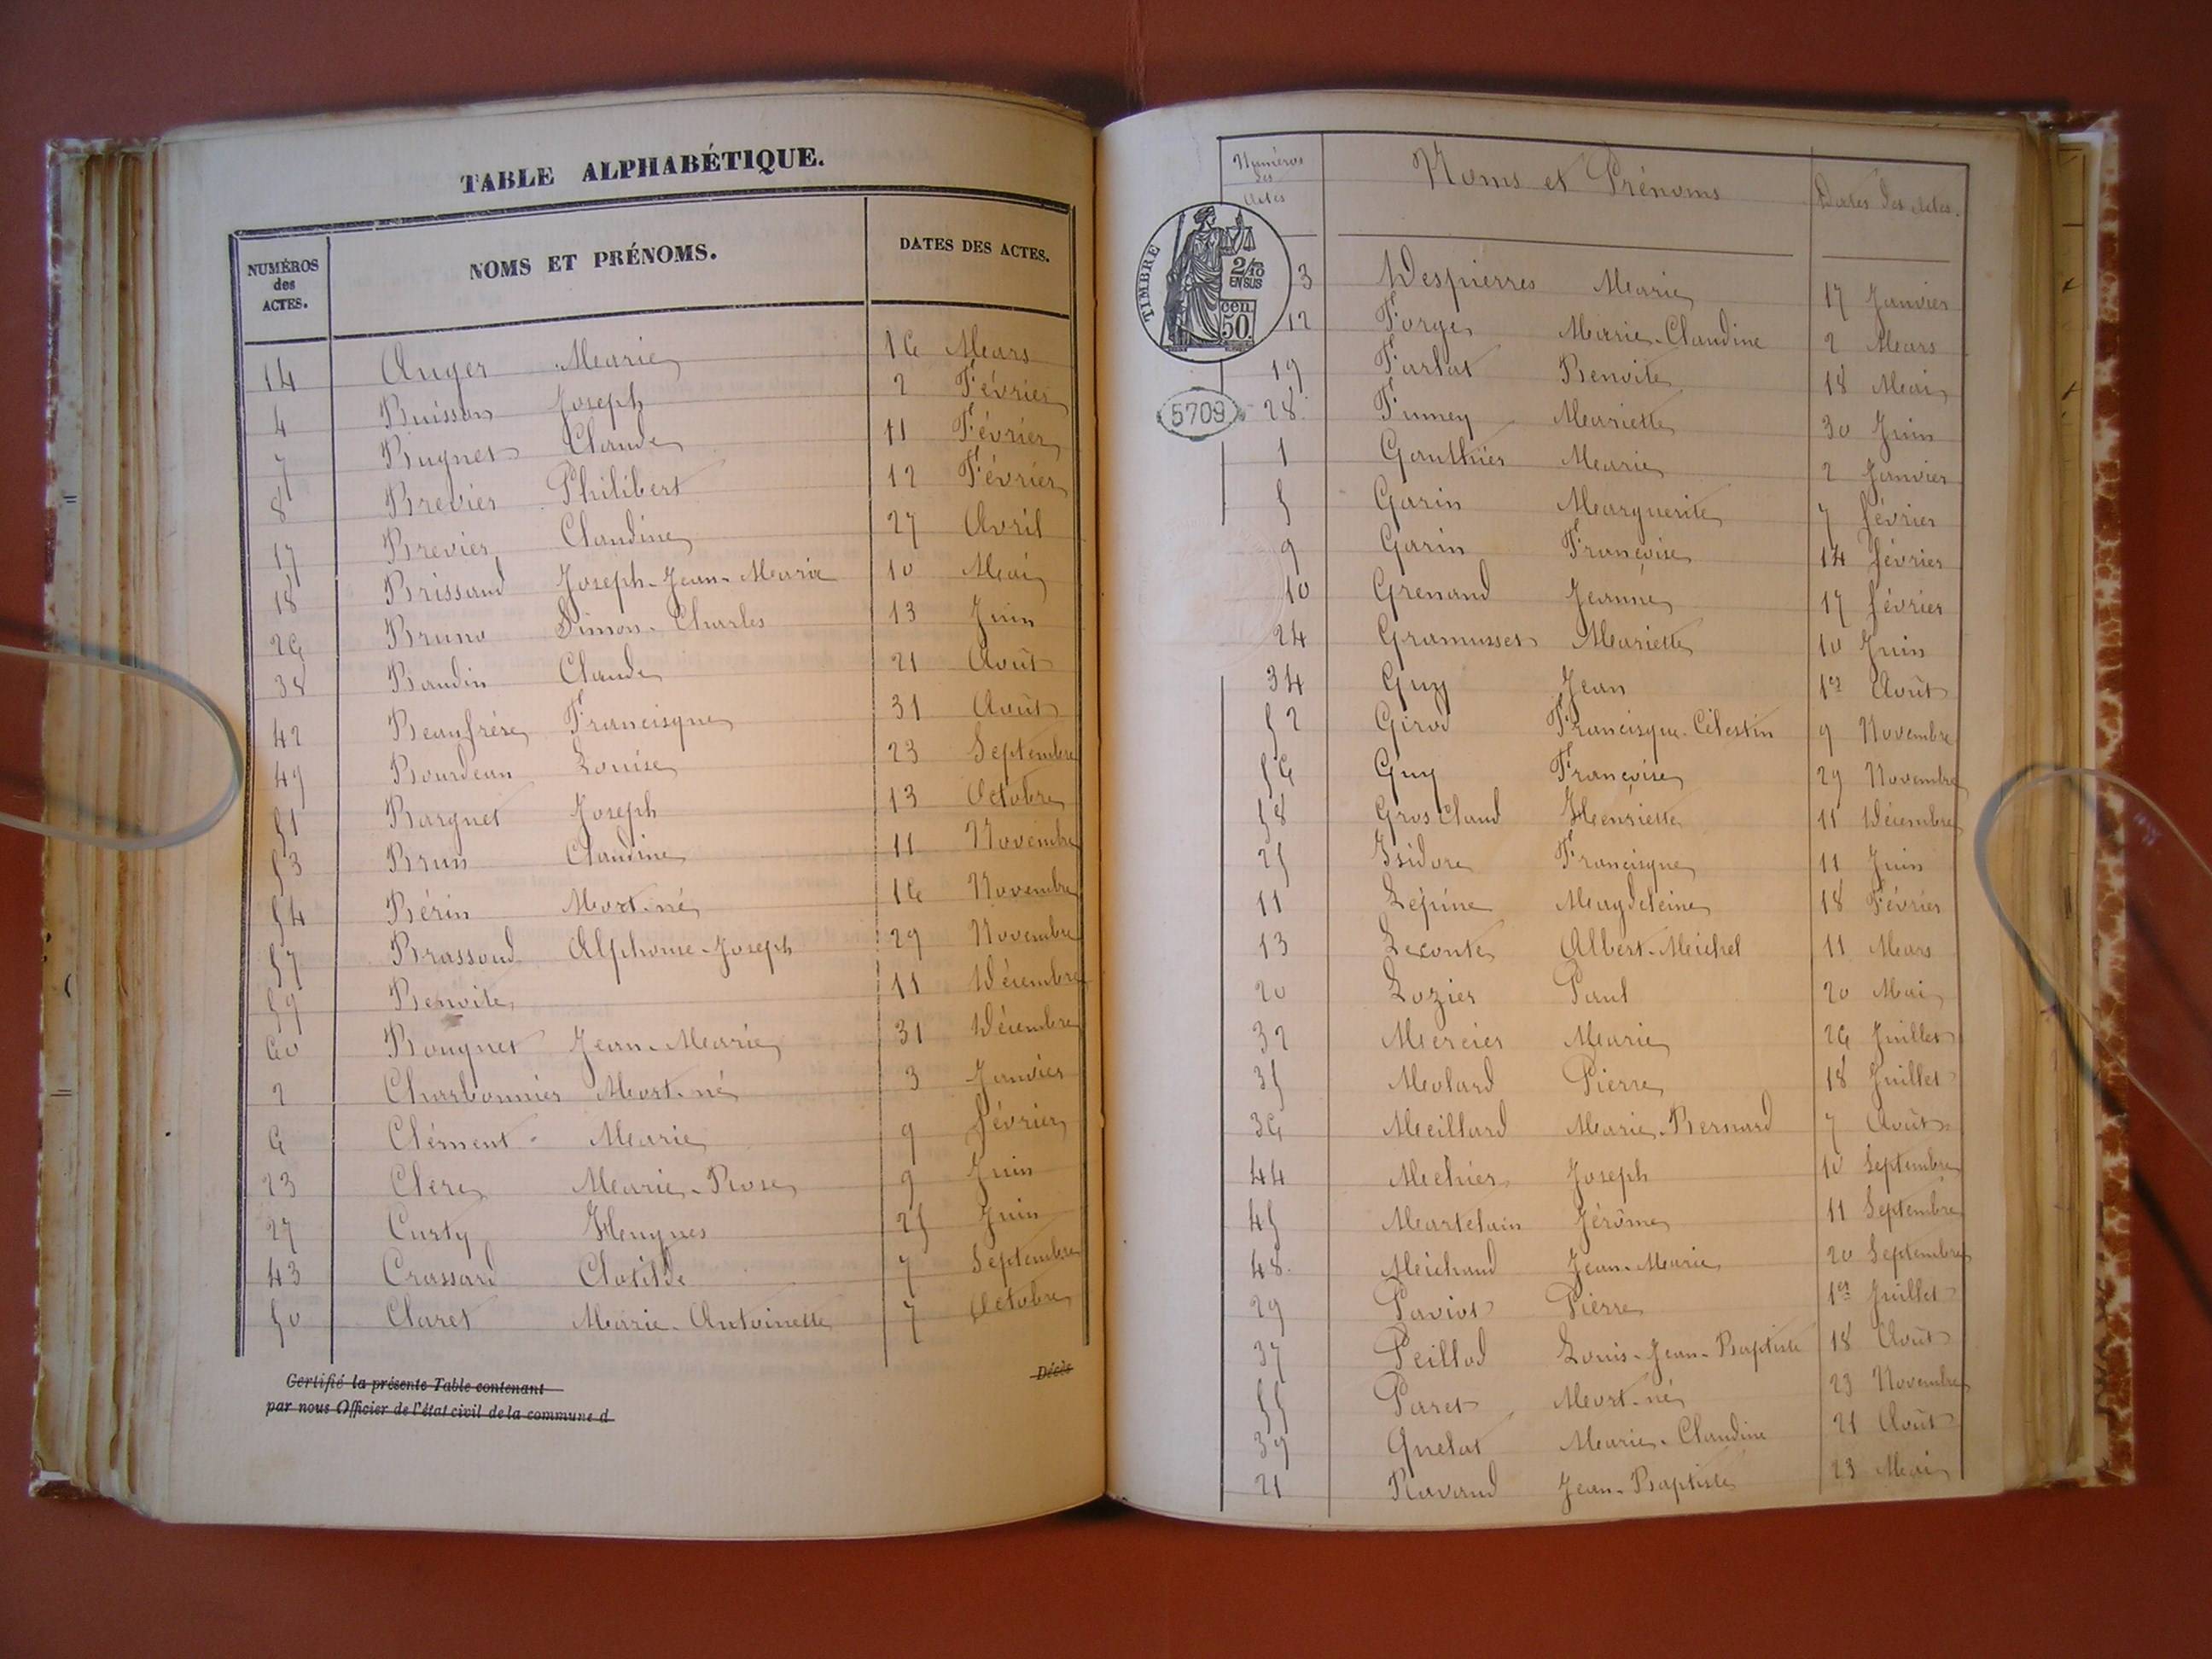 TABLE ALPHABÉTIQUE.
NUMÉROS des ACTES. NOMS ET PRÉNOMS. DATES DES ACTES.
14 Auger Marie 16 Mars
4 Buisson Joseph 2 Février
7 Bugnet Claude 11 Février
8 Brevier Philibert 12 Février
17 Brevier Claudine 27 Avril
18 Brissaud Joseph-Jean-Marie 10 Mai
26 Bruno Simon-Charles 13 Juin
38 Baudin Claude 21 Août
42 Beaufrère Francisque 31 Août
49 Bourdeau Louise 23 Septembre
51 Barguet Joseph 13 Octobre
53 Brun Claudine 11 Novembre
54 Bérin Mort-né 16 Novembre
57 Brassoud Alphonse-Joseph 29 Novembre
59 Benoite 11 Décembre
60 Bouguet Jean-Marie 31 Décembre
2 Charbonnier Mort-né 3 Janvier
6 Clément Marie 9 février
23 Clerc Marie-Rose 9 Juin
27 Curty Hugues 25 Juin
43 Crassard Clotilde 7 Septembre
50 Claret Marie-Antoinette 7 Octobre
Certifié la présente Table contenant Décès
par nous Officier de l'état civil de la commune d
Numéros des Actes Noms et Prénoms Dates des Actes.
TIMBRE
2/10 EN SUS
50 cen.
5709
3 Despierres Marie 17 Janvier
12 Forge Marie-Claudine 2 Mars
19 Farlat Benoite 18 Mai
28 Fumey Mariette 30 Juin
1 Gauthier Marie 2 Janvier
5 Garin Marguerite 7 février
9 Garin Françoise 14 février
10 Grenaud Jeanne 17 février
24 Gramusset Mariette 10 Juin
34 Guy Jean 1er Août
52 Girod Francisque-Célestin 9 Novembre
56 Guy Françoise 29 Novembre
58 Grosclaud Henriette 11 Décembre
25 Isidore Francisque 11 Juin
11 Lépine Magdeleine 18 Février
13 Leconte Albert-Michel 11 Mars
20 Lozier Paul 20 Mai
32 Mercier Marie 26 Juillet
35 Molard Pierre 18 Juillet
36 Meillard Marie-Bernard 7 Août
44 Mehier Joseph 10 Septembre
45 Martelain Jérôme 11 Septembre
48 Michaud Jean-Marie 20 Septembre
29 Paviot Pierre 1er Juillet
37 Peillod Louis-Jean-Baptiste 18 Août
55 Paret Mort-né 23 Novembre
39 Quelat Marie-Claudine 21 Août
21 Ravaud Jean-Baptiste 23 Mai